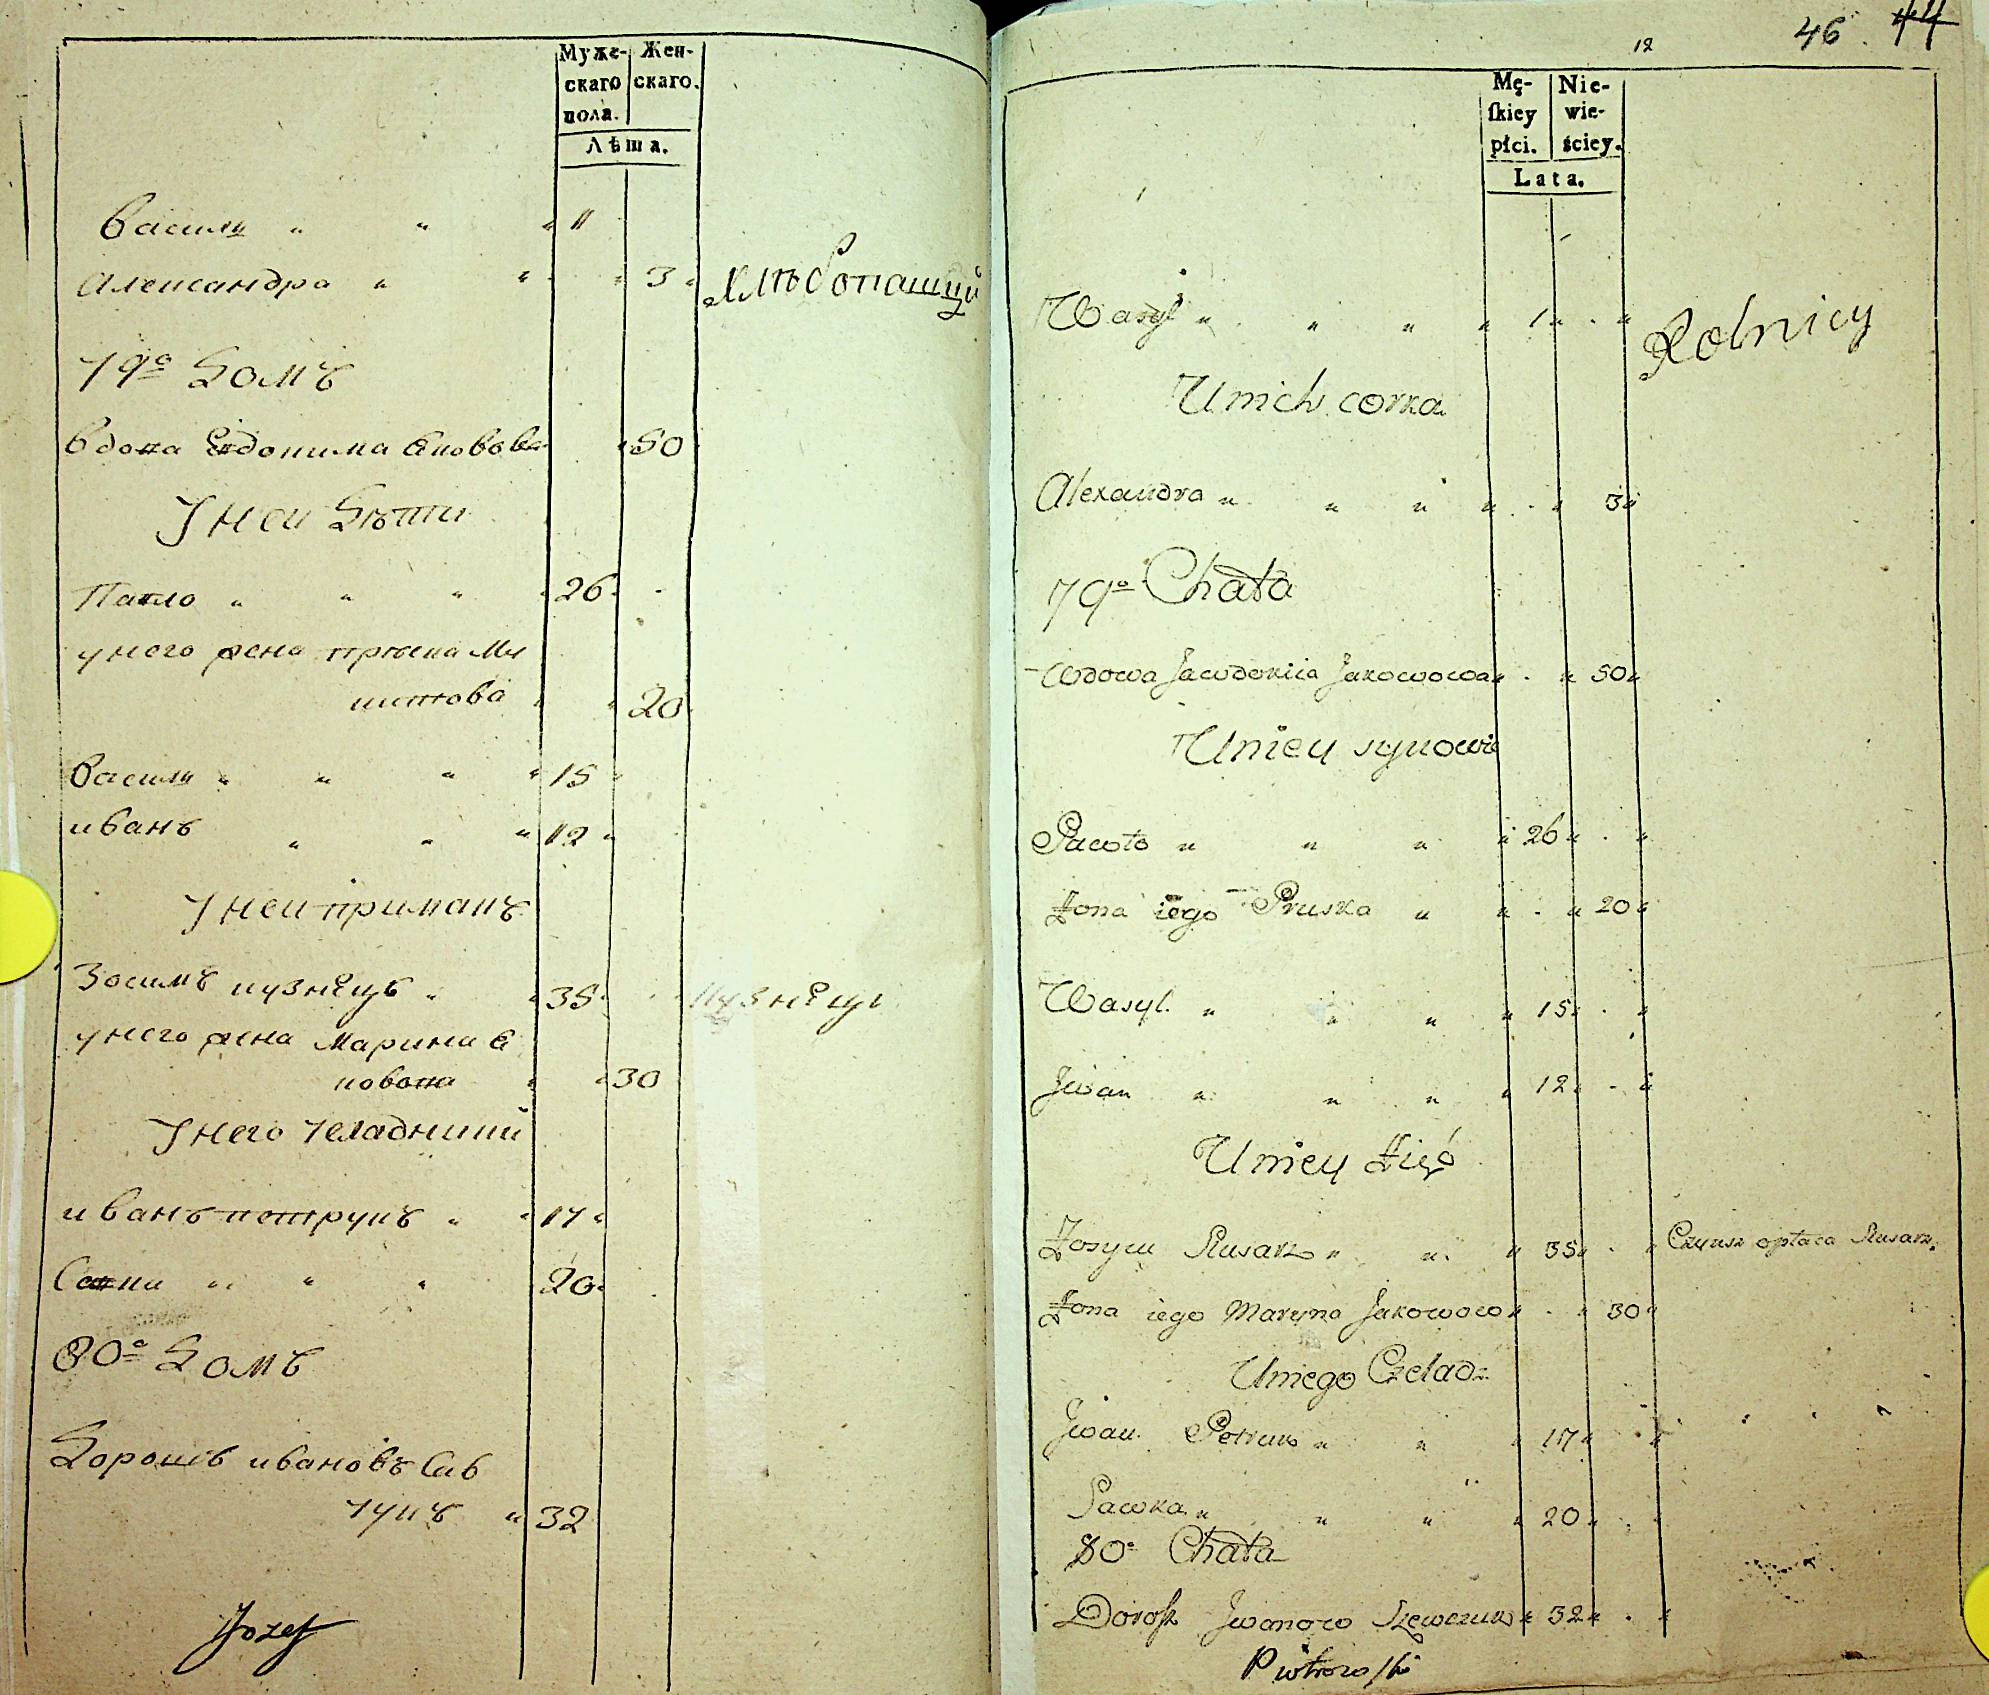 Муже- Жен-
скаго скаго.
пола.
Лѣта.
Васили " " " 11
Александра " " " 3 " хлѣбопашцы
79º Домъ
Вдова Евдокима Яковова " 50
У неи Дѣти
Павло " " " 26
у него жена Прыска Ми
китова " " 20
Васили " " " " 15 "
иванъ " " " 12 "
У неи примакъ
Зосимъ кузнецъ " " 35 " кузнецъ
у него жена Марина Я
ковова " " 30
У него челадники
иванъ петрукъ " " 17 "
Савка " " " 20 "
80º Домъ
Дорошъ ивановъ
" 32
Jozef
12 46 44
Mę- Nie-
skiey wie-
płci. ściey.
Lata.
Wasyl " " " " 1 " . " Rolnicy
U nich corka
Alexandra " " " " . " 3 "
79º Chata
Wdowa Jawdokiia Jakowowa " . " 50 "
U niey synowie
Pawło " " " " 26 " . "
Żona iego Pruska " " . " 20 "
Wasyl. " " " " 15 " . "
Jwan " " " " " 12 " . "
U niey Zięć
Zosym Slusarz " " " 35 " . " Czynsz opłaca Slusarz.
Żona iego Maryna Jakowow " . " 30 "
U niego Czeladz
Jwan Petruk " " " 17 " "
Sawka " " " " 20 " . "
80º Chata
Dorosz Jwanow Szewczuk " 32 " . "